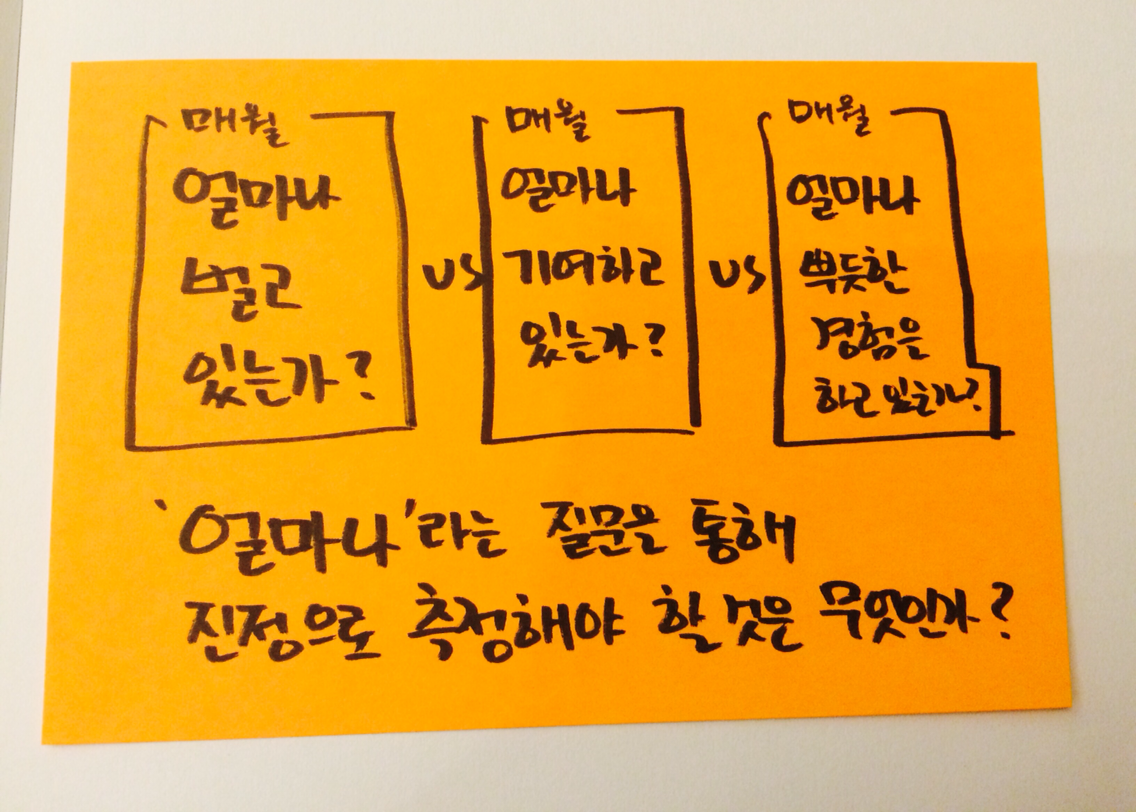 매월
얼마나
벌고
있는가?
vs
매월
얼마나
기여하고
있는가?
vs
매월
얼마나
뿌듯한
경험을
하고 있는가?
'얼마나'라는 질문을 통해
진정으로 측정해야 할 것은 무엇인가?